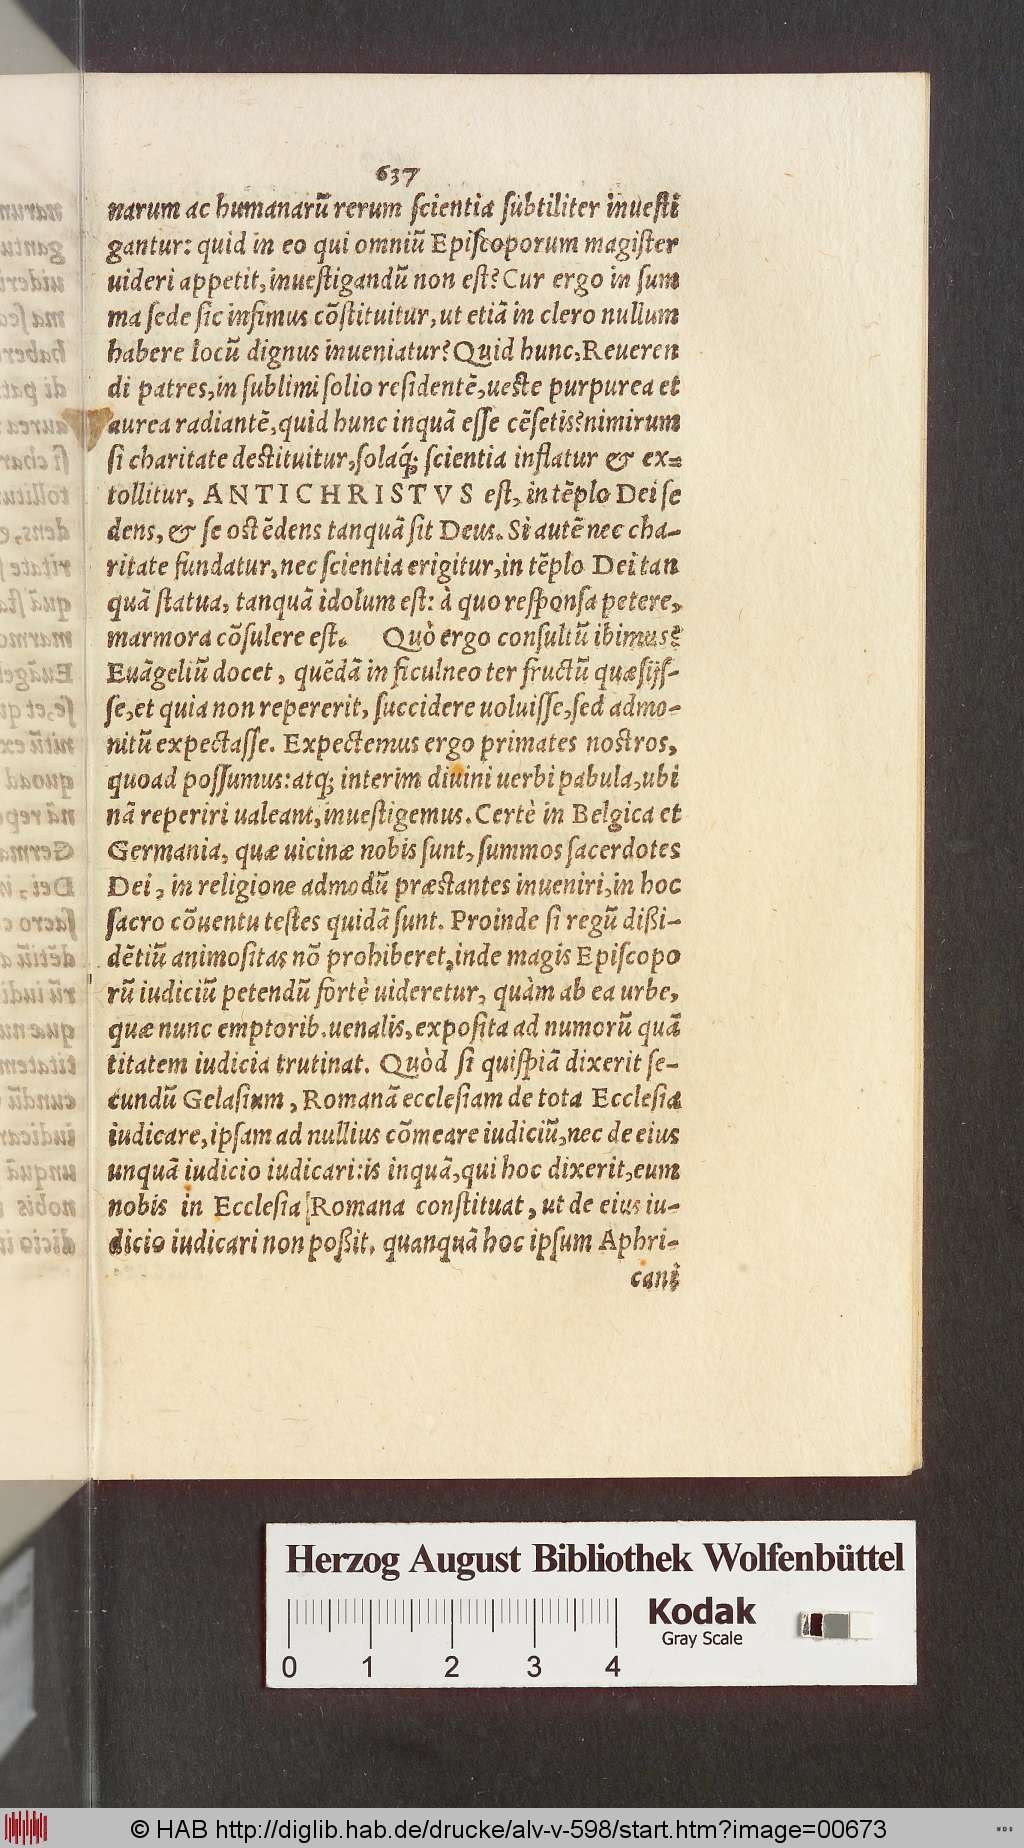 637
narum ac humanarũ rerum ſcientia ſubtiliter inueſti
gantur: quid in eo qui omniũ Epiſcoporum magiſter
uideri appetit, inueſtigandũ non eſt? Cur ergo in ſum
ma ſede ſic infimus cõſtituitur, ut etiã in clero nullum
habere locũ dignus inueniatur? Quid hunc, Reueren
di patres, in ſublimi ſolio reſidentẽ, ueſte purpurea et
aurea radiantẽ, quid hunc inquã eſſe cẽſetis? nimirum
ſi charitate deſtituitur, ſolaq́; ſcientia inflatur & ex=
tollitur, ANTICHRISTVS eſt, in tẽplo Dei ſe
dens, & ſe oſtẽdens tanquã ſit Deus. Si autẽ nec cha-
ritate fundatur, nec ſcientia erigitur, in tẽplo Dei tan
quã ſtatua, tanquã idolum eſt: à quo reſponſa petere,
marmora cõſulere eſt. Quò ergo conſultũ ibimus?
Euãgeliũ docet, quẽdã in ficulneo ter fructũ quæſijſ-
ſe, et quia non repererit, ſuccidere uoluiſſe, ſed admo-
nitũ expectaſſe. Expectemus ergo primates noſtros,
quoad poſſumus: atq; interim diuini uerbi pabula, ubi
nã reperiri ualeant, inueſtigemus. Certè in Belgica et
Germania, quæ uicinæ nobis ſunt, ſummos ſacerdotes
Dei, in religione admodũ præſtantes inueniri, in hoc
ſacro cõuentu teſtes quidã ſunt. Proinde ſi regũ dißi-
dẽtiũ animoſitas nõ prohiberet, inde magis Epiſcopo
rũ iudiciũ petendũ fortè uideretur, quàm ab ea urbe,
quæ nunc emptorib. uenalis, expoſita ad numorũ quã
titatem iudicia trutinat. Quòd ſi quiſpiã dixerit ſe-
cundũ Gelaſium, Romanã eccleſiam de tota Eccleſia
iudicare, ipſam ad nullius cõmeare iudiciũ, nec de eius
unquã iudicio iudicari: is inquã, qui hoc dixerit, eum
nobis in Eccleſia Romana conſtituat, ut de eius iu-
dicio iudicari non poßit. quanquã hoc ipſum Aphri-
cani
Herzog August Bibliothek Wolfenbüttel
Kodak
Gray Scale
0 1 2 3 4
© HAB http://diglib.hab.de/drucke/alv-v-598/start.htm?image=00673